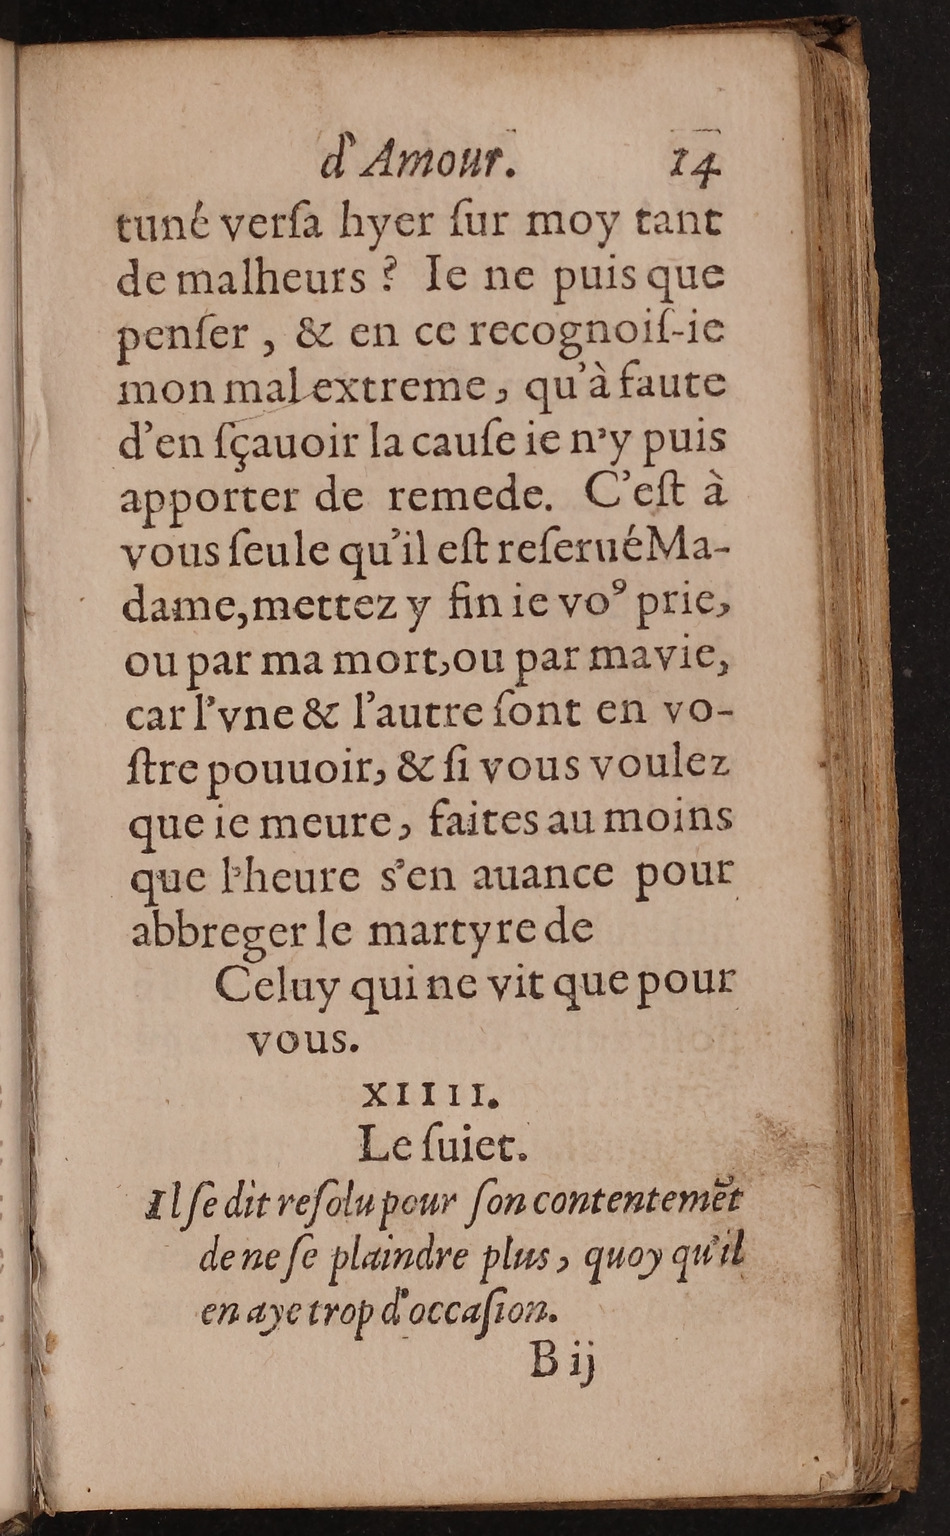 d'Amour. 14
tuné verſa hyer ſur moy tant
de malheurs ? Ie ne puis que
penſer , & en ce recognoiſ-ie
mon mal extreme, qu'à faute
d'en ſçauoir la cauſe ie n'y puis
apporter de remede. C'eſt à
vous ſeule qu'il eſt reſerué Ma-
dame, mettez y fin ie voꝰ prie,
ou par ma mort, ou par ma vie,
car l'vne & l'autre ſont en vo-
ſtre pouuoir, & ſi vous voulez
que ie meure, faites au moins
que l'heure s'en auance pour
abbreger le martyre de
Celuy qui ne vit que pour
vous.
XIIII.
Le ſuiet.
Il ſe dit reſolu pour ſon contentemẽt
de ne ſe plaindre plus, quoy qu'il
en aye trop d'occaſion.
B ij